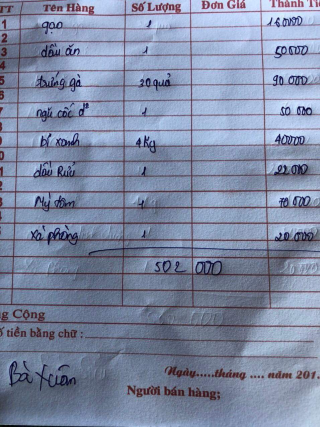 TT Tên Hàng Số Lượng Đơn Giá Thành Ti
1 gạo 1 160000
3 dầu ăn 1 50000
5 trứng gà 30 quả 90 000
7 ngũ cốc 1 50 000
9 bí xanh 4 kg 40000
1 dầu Rửa 1 22 000
3 Mỳ tôm 4 70 000
xà phòng 1 20 000
502 000
g Cộng
ố tiền bằng chữ :
Ngày.....tháng .... năm 201.
Bà Xuân
Người bán hàng;